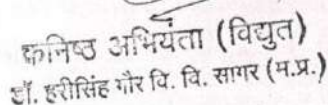 कनिष्ठ अभियंता (विद्युत)
डॉ. हरीसिंह गौर वि. वि. सागर (म.प्र.)